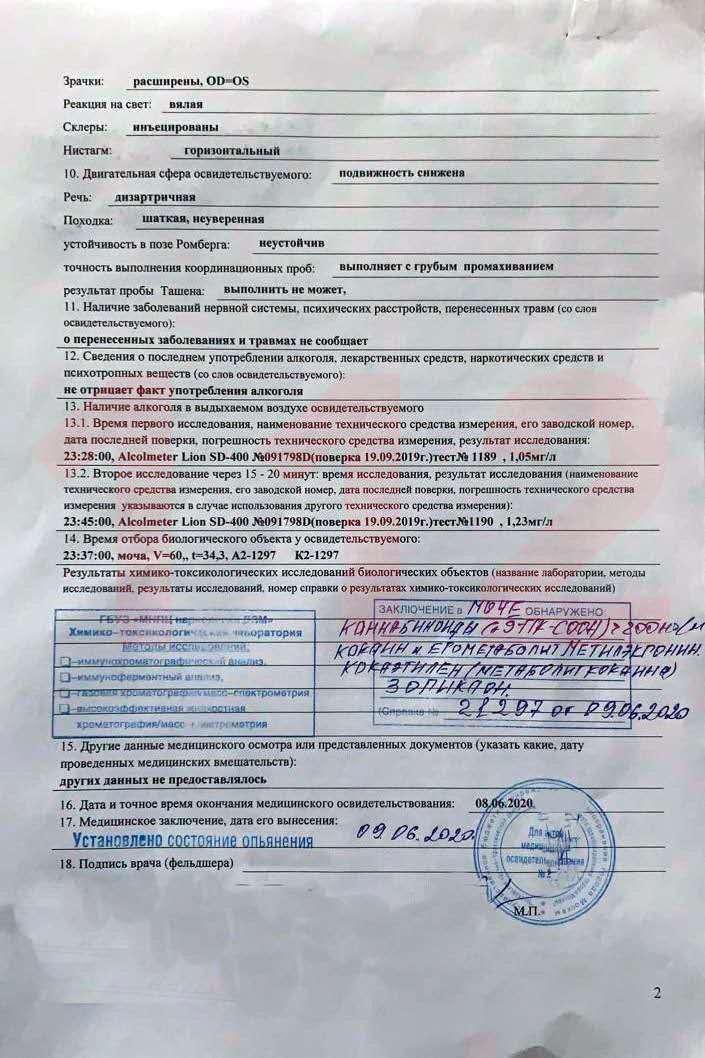 Зрачки: расширены, OD=OS
Реакция на свет: вялая
Склеры: инъецированы
Нистагм: горизонтальный
10. Двигательная сфера освидетельствуемого: подвижность снижена
Речь: дизартричная
Походка: шаткая, неуверенная
устойчивость в позе Ромберга: неустойчив
точность выполнения координационных проб: выполняет с грубым промахиванием
результат пробы Ташена: выполнить не может,
11. Наличие заболеваний нервной системы, психических расстройств, перенесенных травм (со слов
освидетельствуемого):
о перенесенных заболеваниях и травмах не сообщает
12. Сведения о последнем употреблении алкоголя, лекарственных средств, наркотических средств и
психотропных веществ (со слов освидетельствуемого):
не отрицает факт употребления алкоголя
13. Наличие алкоголя в выдыхаемом воздухе освидетельствуемого
13.1. Время первого исследования, наименование технического средства измерения, его заводской номер,
дата последней поверки, погрешность технического средства измерения, результат исследования:
23:28:00, Alcolmeter Lion SD-400 №091798D(поверка 19.09.2019г.)тест№ 1189 , 1,05мг/л
13.2. Второе исследование через 15 - 20 минут: время исследования, результат исследования (наименование
технического средства измерения, его заводской номер, дата последней поверки, погрешность технического средства
измерения указываются в случае использования другого технического средства измерения):
23:45:00, Alcolmeter Lion SD-400 №091798D(поверка 19.09.2019г.)тест№1190 , 1,23мг/л
14. Время отбора биологического объекта у освидетельствуемого:
23:37:00, моча, V=60,, t=34,3, А2-1297 К2-1297
Результаты химико-токсикологических исследований биологических объектов (название лаборатории, методы
исследований, результаты исследований, номер справки о результатах химико-токсикологических исследований)
ГБУЗ «МНПЦ наркологии ДЗМ»
Химико-токсикологическая лаборатория
Методы исследований:
–иммунохроматографический анализ,
–иммуноферментный анализ,
–газовая хроматография/масс-спектрометрия
–высокоэффективная жидкостная
хроматография/масс-спектрометрия
ЗАКЛЮЧЕНИЕ в МОЧЕ ОБНАРУЖЕНО
КАННАБИНОИДЫ
КОКАИН и ЕГО МЕТАБОЛИТ МЕТИЛЭКГОНИН
КОКАЭТИЛЕН (МЕТАБОЛИТ КОКАИНА)
ЗОПИКЛОН.
(Справка № 21297 от 09.06.2020
15. Другие данные медицинского осмотра или представленных документов (указать какие, дату
проведенных медицинских вмешательств):
других данных не предоставлялось
16. Дата и точное время окончания медицинского освидетельствования: 08.06.2020
17. Медицинское заключение, дата его вынесения:
Установлено состояние опьянения 09.06.2020.
18. Подпись врача (фельдшера)
Для актов
медицинского
освидетельствования
№ 2
М.П.
2